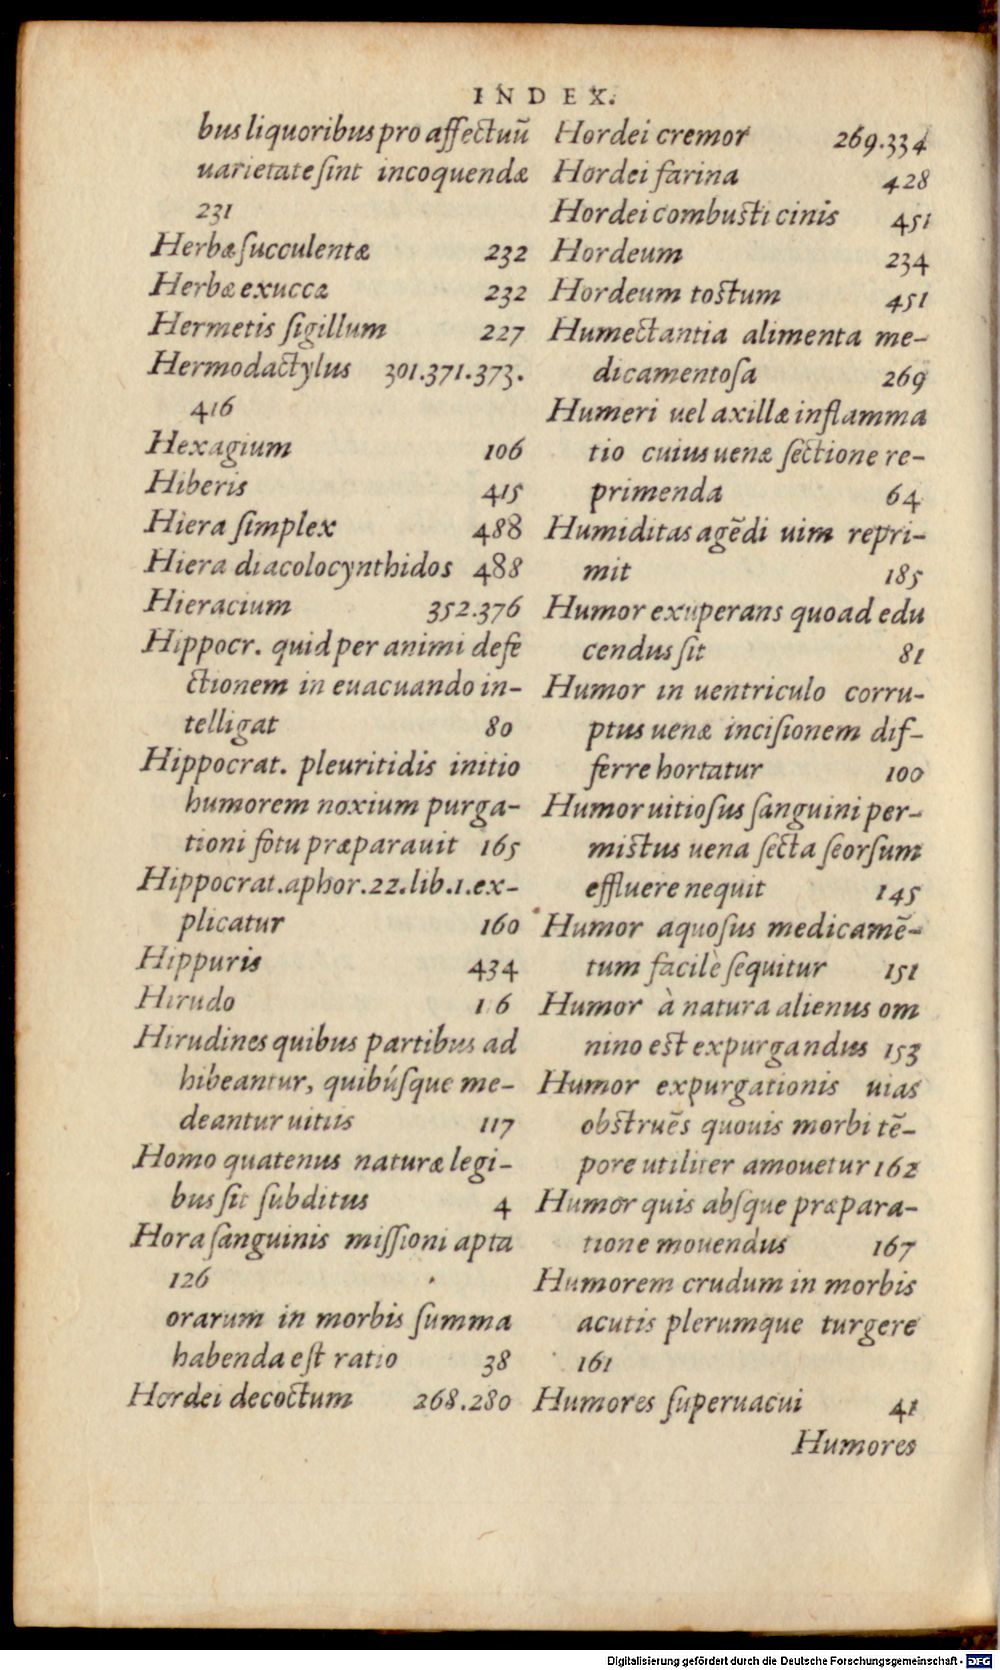 INDEX.
bus liquoribus pro affectuū
uarietate ſint incoquendæ
231
Herbæ ſucculentæ 232
Herbæ exuccæ 232
Hermetis ſigillum 227
Hermodactylus 301.371.373.
416
Hexagium 106
Hiberis 415
Hiera ſimplex 488
Hiera diacolocynthidos 488
Hieracium 352.376
Hippocr. quid per animi defe
ctionem in euacuando in-
telligat 80
Hippocrat. pleuritidis initio
humorem noxium purga-
tioni fotu præparauit 165
Hippocrat.aphor.22.lib.1.ex-
plicatur 160
Hippuris 434
Hirudo 116
Hirudines quibus partibus ad
hibeantur, quibúſque me-
deantur uitiis 117
Homo quatenus naturæ legi-
bus ſit ſubditus 4
Hora ſanguinis miſſioni apta
126
orarum in morbis ſumma
habenda eſt ratio 38
Hordei decoctum 268.280
Hordei cremor 269.334
Hordei farina 428
Hordei combuſti cinis 451
Hordeum 234
Hordeum toſtum 451
Humectantia alimenta me-
dicamentoſa 269
Humeri uel axillæ inflamma
tio cuius uenæ ſectione re-
primenda 64
Humiditas agēdi uim repri-
mit 185
Humor exuperans quoad edu
cendus ſit 81
Humor in uentriculo corru-
ptus uenæ inciſionem dif-
ferre hortatur 100
Humor uitioſus ſanguini per-
miſtus uena ſecta ſeorſum
effluere nequit 145
Humor aquoſus medicamē-
tum facilè ſequitur 151
Humor à natura alienus om
nino eſt expurgandus 153
Humor expurgationis uias
obſtruēs quouis morbi tē-
pore utiliter amouetur 162
Humor quis abſque præpara-
tione mouendus 167
Humorem crudum in morbis
acutis plerumque turgere
161
Humores ſuperuacui 41
Humores
Digitalisierung gefördert durch die Deutsche Forschungsgemeinschaft - DFG